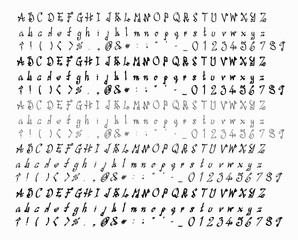 A B C D E F G H I J K L M N O P Q R S T U V W X Y Z
a b c d e f g h i j k l m n o p q r s t u v w x y z
? ! ( ) < > % . , @ & # : ; " - _ 0 1 2 3 4 5 6 7 8 9
A B C D E F G H I J K L M N O P Q R S T U V W X Y Z
a b c d e f g h i j k l m n o p q r s t u v w x y z
? ! ( ) < > % . , @ & # : ; " - _ 0 1 2 3 4 5 6 7 8 9
A B C D E F G H I J K L M N O P Q R S T U V W X Y Z
a b c d e f g h i j k l m n o p q r s t u v w x y z
? ! ( ) < > % . , @ & # : ; " - _ 0 1 2 3 4 5 6 7 8 9
A B C D E F G H I J K L M N O P Q R S T U V W X Y Z
a b c d e f g h i j k l m n o p q r s t u v w x y z
? ! ( ) < > % . , @ & # : ; " - _ 0 1 2 3 4 5 6 7 8 9
A B C D E F G H I J K L M N O P Q R S T U V W X Y Z
a b c d e f g h i j k l m n o p q r s t u v w x y z
? ! ( ) < > % . , @ & # : ; " - _ 0 1 2 3 4 5 6 7 8 9